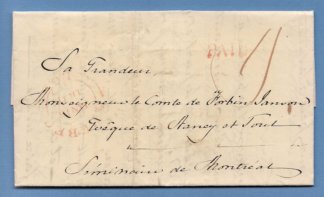 Sa Grandeur
Monseigneur le Comte de Forbin Janson
Evêque de Nancy et Toul
Séminaire de Montréal